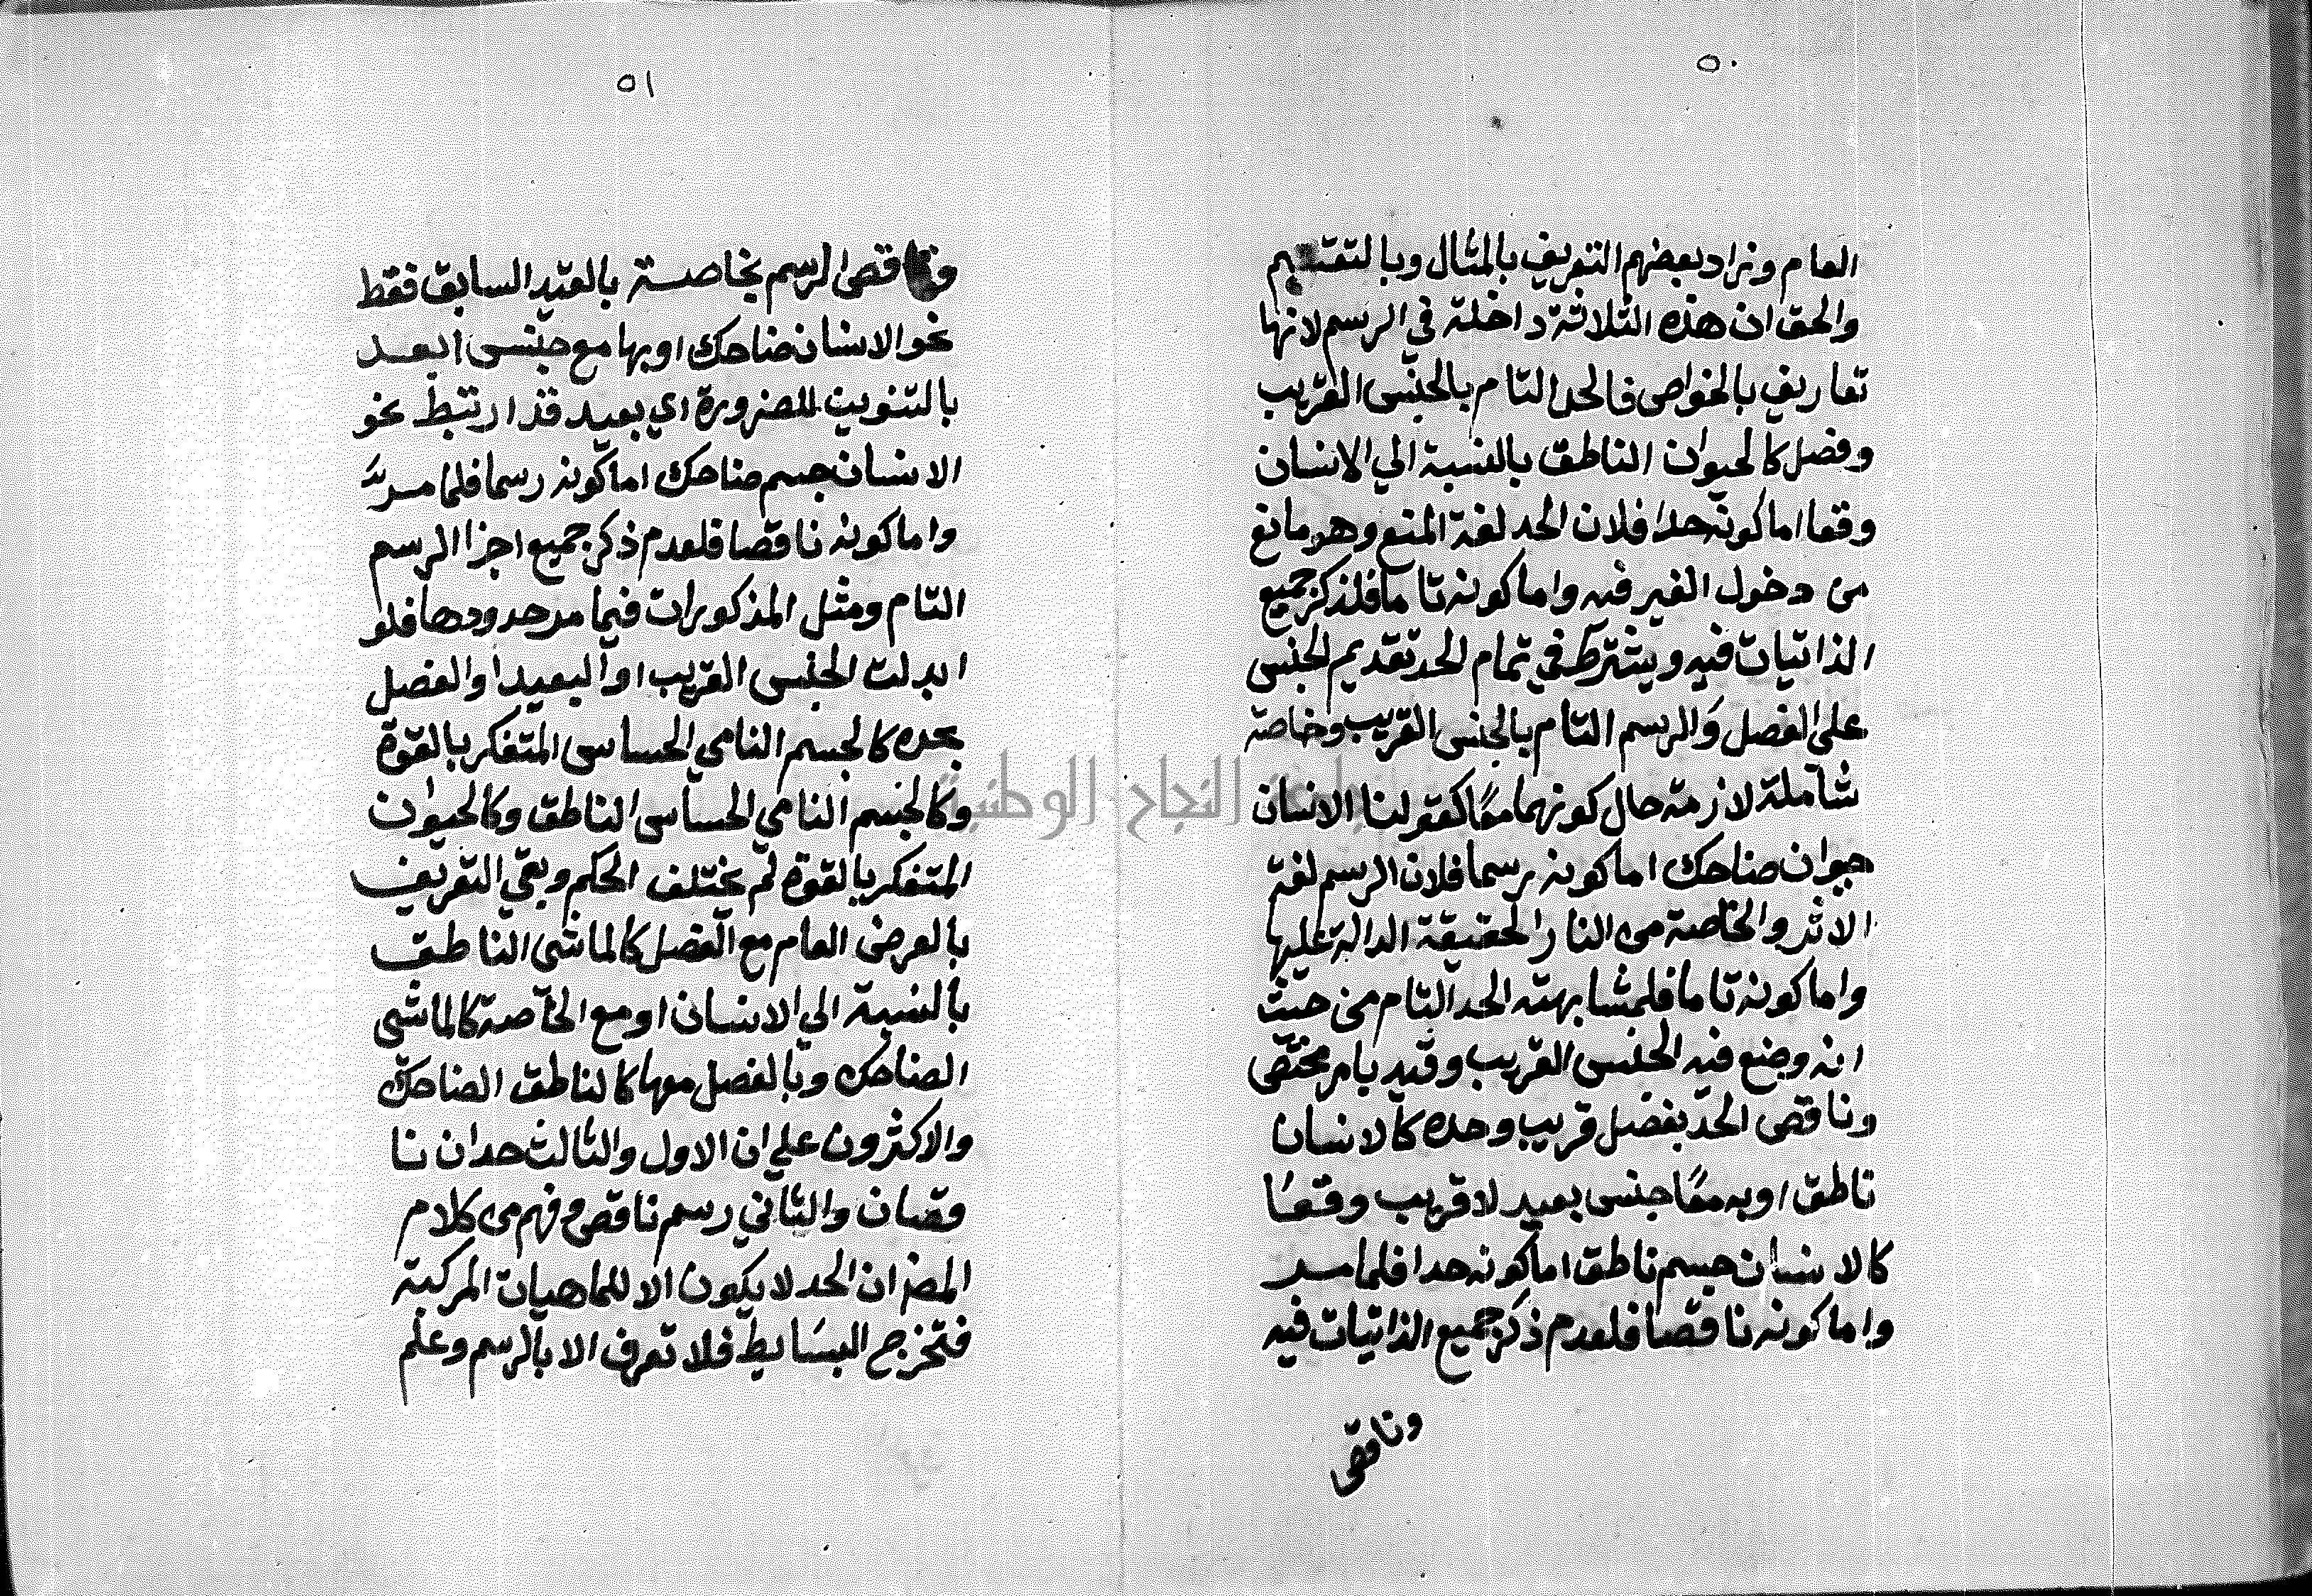 ٥٠
العام وزاد بعضهم التعريف بالمثال وبالتقسيم
والحق ان هذه الثلاثة داخلة في الرسم لانها
تعاريف بالخواص فالحد التام بالجنس القريب
وفصل كالحيوان الناطق بالنسبة الي الانسان
وقعا اما كونه حدا فلان الحد لغة المنع وهو مانع
من دخول الغير فيه واما كونه تاما فلذكر جميع
الذاتيات فيه ويشترط في تمام الحد تقديم الجنس
على الفصل والرسم التام بالجنس القريب وخاصة
شاملة لازمة حال كونهما معًا كقولنا الانسان
حيوان ضاحك اما كونه رسما فلان الرسم لغة
الاثر والخاصة من اثار الحقيقة الدالة عليها
واما كونه تاما فلمشابهته الحد التام من حيث
انه وضع فيه الجنس القريب وقيد بامر مختص
وناقص الحدّ بفصل قريب وحده كالانسان
ناطق او به معًا جنس بعيد لا قريب وقعًا
كالانسان جسم ناطق اما كونه حدا فلما مر
واما كونه ناقصا فلعدم ذكر جميع الذاتيات فيه
وناقص
٥١
وناقص الرسم بخاصة بالقيد السابق فقط
نحو الانسان ضاحك او بها مع جنس أبعد
بالتنوين للضرورة اي بعيد قد ارتبط نحو
الانسان جسم ضاحك اما كونه رسما فلما مر
واما كونه ناقصا فلعدم ذكر جميع اجزا الرسم
التام ومثل المذكورات فيما مر حدودها فلو
ابدلت الجنس القريب او البعيد او الفصل
بحده كالجسم النامي الحساس المتفكر بالقوة
وكالجسم النامي الحساس الناطق وكالحيوان
المتفكر بالقوة لم يختلف الحكم وبقي التعريف
بالعرض العام مع الفصل كالماشي الناطق
بالنسبة الي الانسان او مع الخاصة كالماشي
الضاحك وبالفصل معها كالناطق الضاحك
والاكثرون علي ان الاول والثالث حدان نا
قصان والثاني رسم ناقص وفهم من كلام
المص ان الحد لا يكون الا للماهيات المركبة
فتخرج البسايط فلا تعرف الا بالرسم وعلم
جامعة النجاح الوطنية